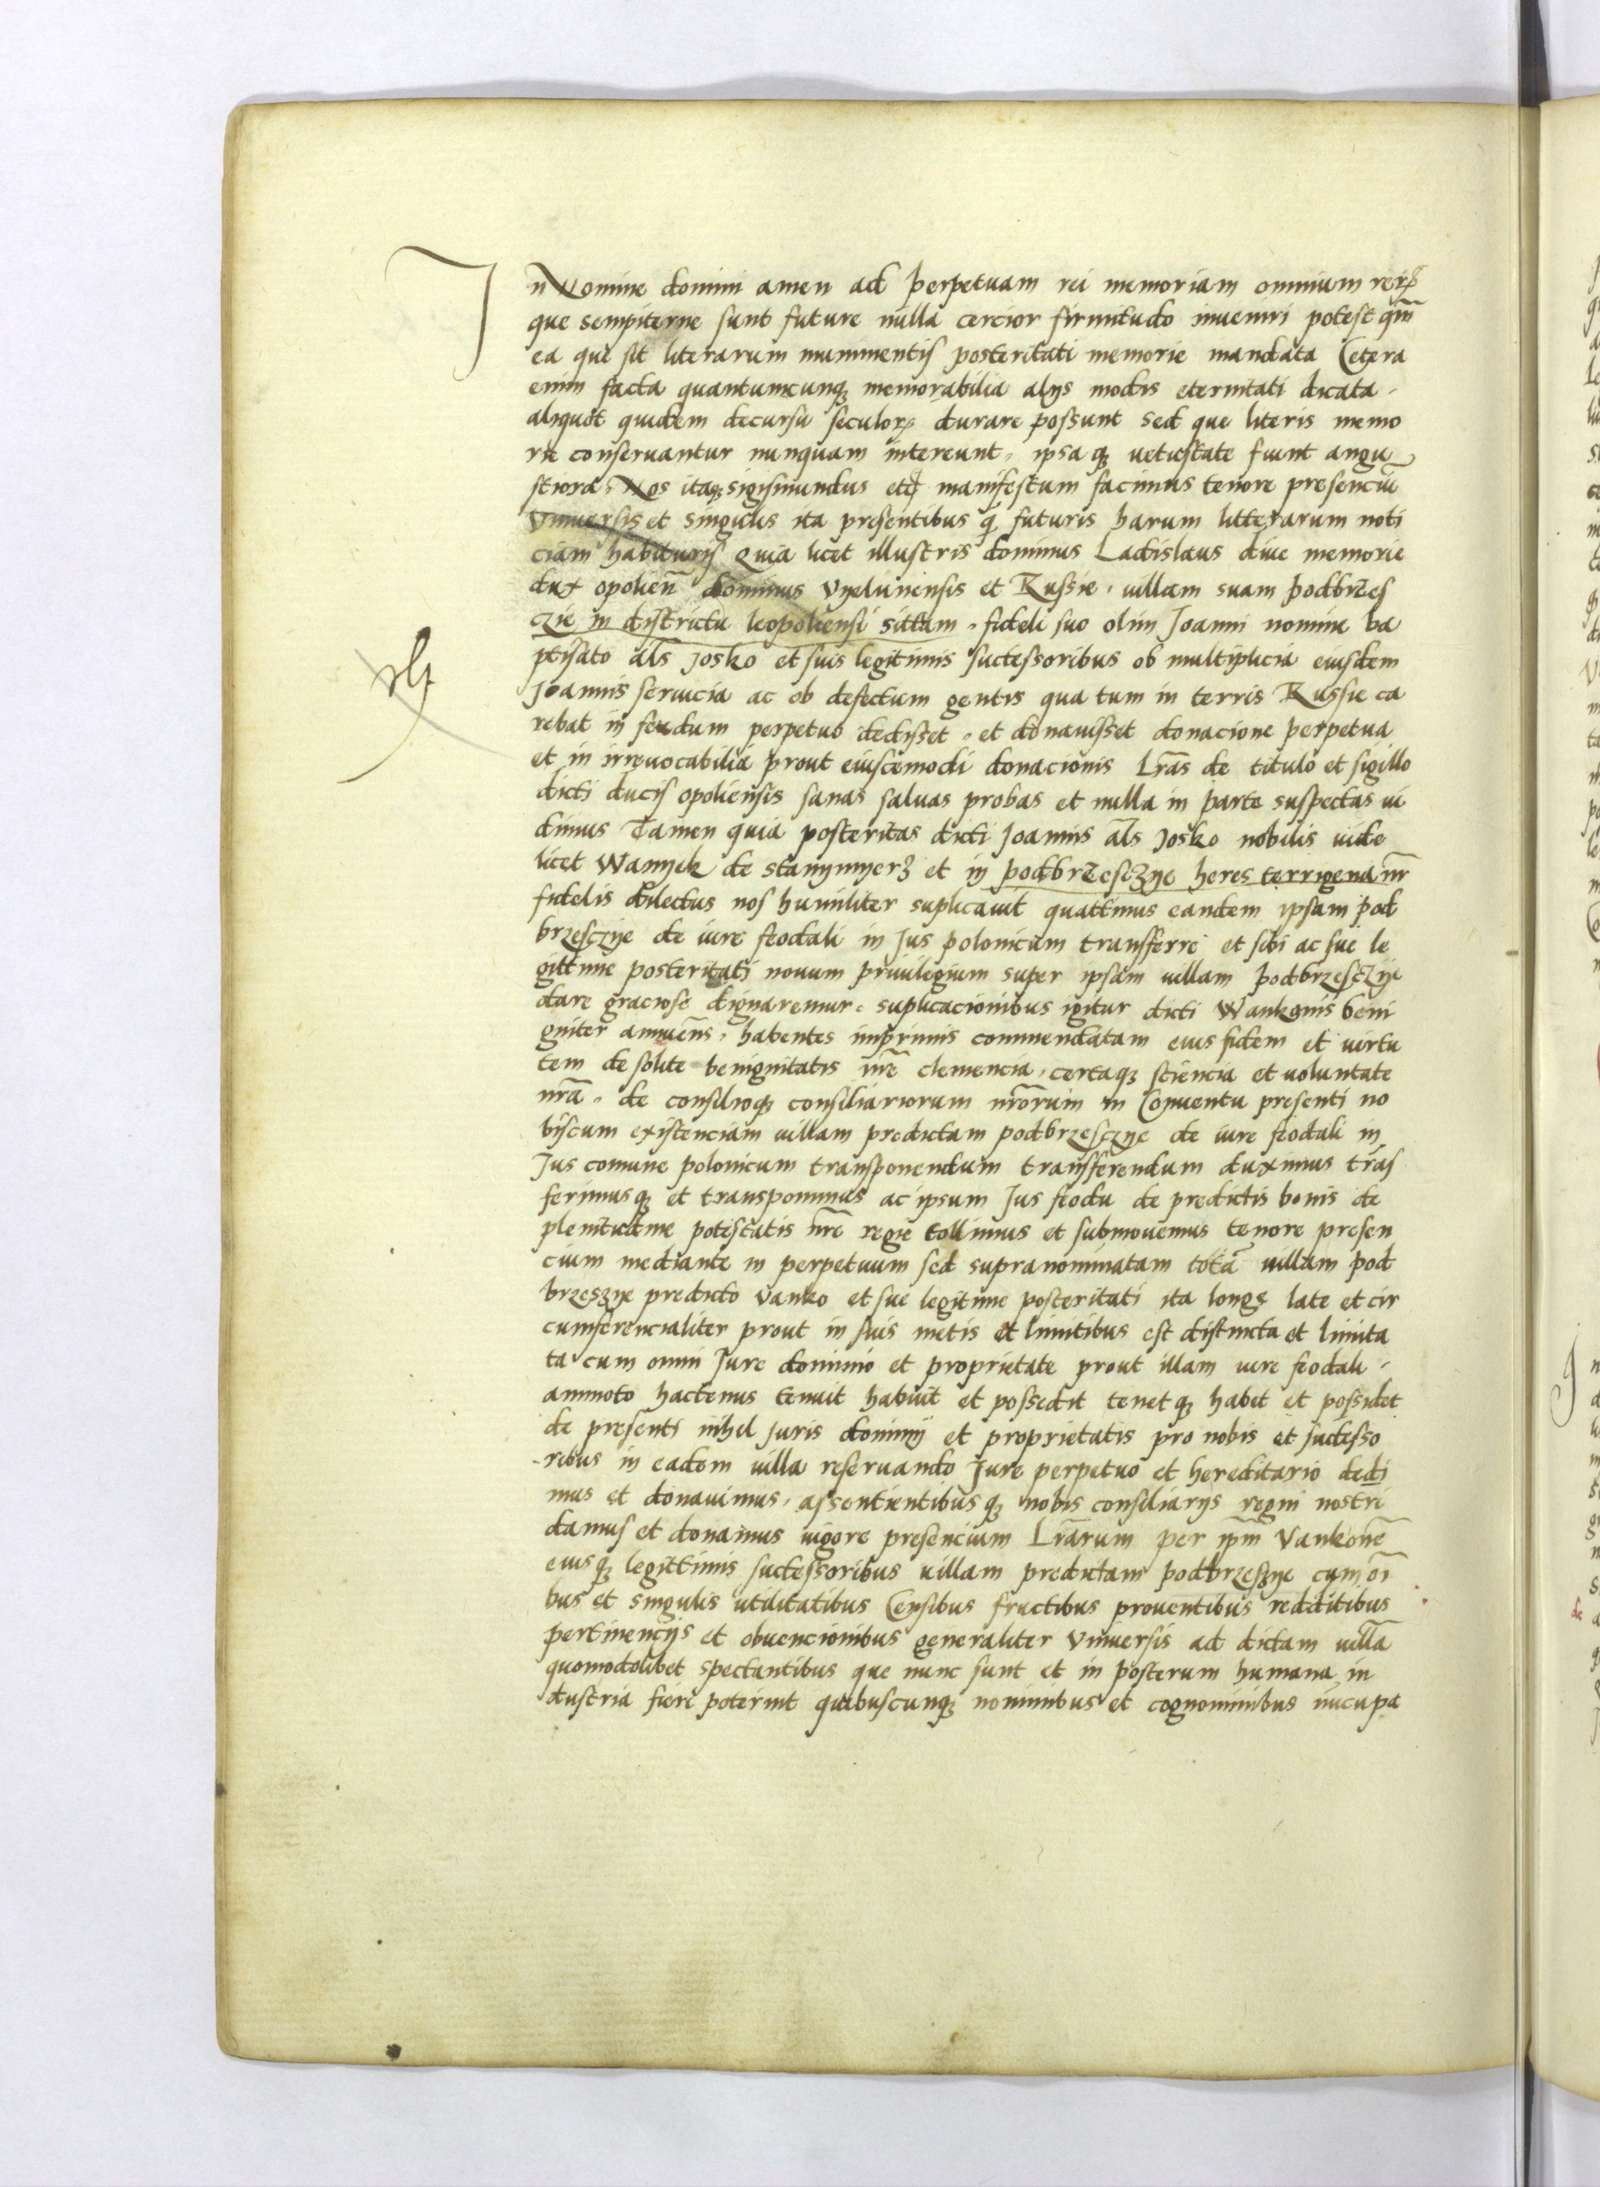 In Nomine domini amen ad perpetuam rei memoriam omnium rerꝝ
que sempiterne sunt future nulla cercior firmitudo inveniri potest qm̄
ea que sit literarum munimentis posteritati memorie mandata Cetera
enim facta quantumcunqꝫ memorabilia alijs modis eternitati dicata
aliquot quidem decursu seculorꝝ durare possunt sed que literis memo
rie conservantur nunquam intereunt, ipsa qꝫ vetustate fiunt angu
stiora, Nos itaqꝫ sigismundus etc̄ manifestum facimus tenore presenciū
Universis et singulis ita presentibus qꝫ futuris harum litterarum noti
ciam habituris Quia licet illustris dominus Ladislaus dive memorie
dux opolien̄ dominus Vyelunensis et Russie, villam suam podbrzes
czie in districtu leopoliensi sittam, fideli suo olim Joanni nomine ba
ptisato als̄ Josko et suis legitimis successoribus ob multiplicia eiusdem
Joannis servicia ac ob defectum gentis qua tum in terris Russie ca
rebat in feudum perpetuo dedisset, et donavisset donacione perpetua
et in irrevocabilia prout eiuscemodi donacionis Lrās de titulo et sigillo
dicti ducis opoliensis sanas salvas probas et nulla in parte suspectas vi
dimus Tamen quia posteritas dicti Joannis als̄ Josko nobilis vide
licet Wanyek de stanymyerz et in podbrzesczye heres terrigena nr̄
fidelis dilectus nos humiliter suplicavit quattinus eandem ipsam pod
brzesczye de iure feodali in Jus polonicum transferre et sibi ac sue le
gittime posteritati novum privilegium super ipsam villam podbrzesczye
dare graciose dignaremur, suplicacionibus igitur dicti Wankonis beni
gniter annuen̄s, habentes inprimis commendatam eius fidem et virtu
tem de solite benignitatis nr̄e clemencia, certaqꝫ sciencia et voluntate
nr̄a, de consilioqꝫ consiliariorum nr̄orum in Conventu presenti no
biscum existenciam villam predictam podbrzesczye de iure feodali in
Jus comune polonicum transponendum transferendum duximus trās
ferimusqꝫ et transponimus ac ipsum Jus feodu de predictis bonis de
plenitudine potestatis nr̄e regie tollimus et submovemus tenore presen
cium mediante in perpetuum sed supranominatam totā villam pod
brzeszye predicto Vanko et sue legitime posteritati ita longe late et cir
cumferencialiter prout in suis metis et limitibus est distincta et limita
ta cum omni Jure dominio et proprietate prout illam iure feodali,
ammoto hactenus tenuit habuit et possedit tenetqꝫ habet et possidet
de presenti nihil Juris dominij et proprietatis pro nobis et successo
ribus in eadem villa reservando Jure perpetuo et hereditario dedi
mus et donavimus, assentientibusqꝫ nobis consiliarijs regni nostri
damus et donamus vigore presencium Lrārum per ipm̄ Vankonē
eiusqꝫ legittimis successoribus villam predictam podbrzeszye cum oī
bus et singulis utilitatibus Censibus fructibus proventibus redditibus
pertinencijs et obvencionibus generaliter Universis ad dictam villā
quomodolibet spectantibus que nunc sunt et in posterum humana in
dustria fieri poterint quibuscunqꝫ nominibus et cognominibus nūcupa